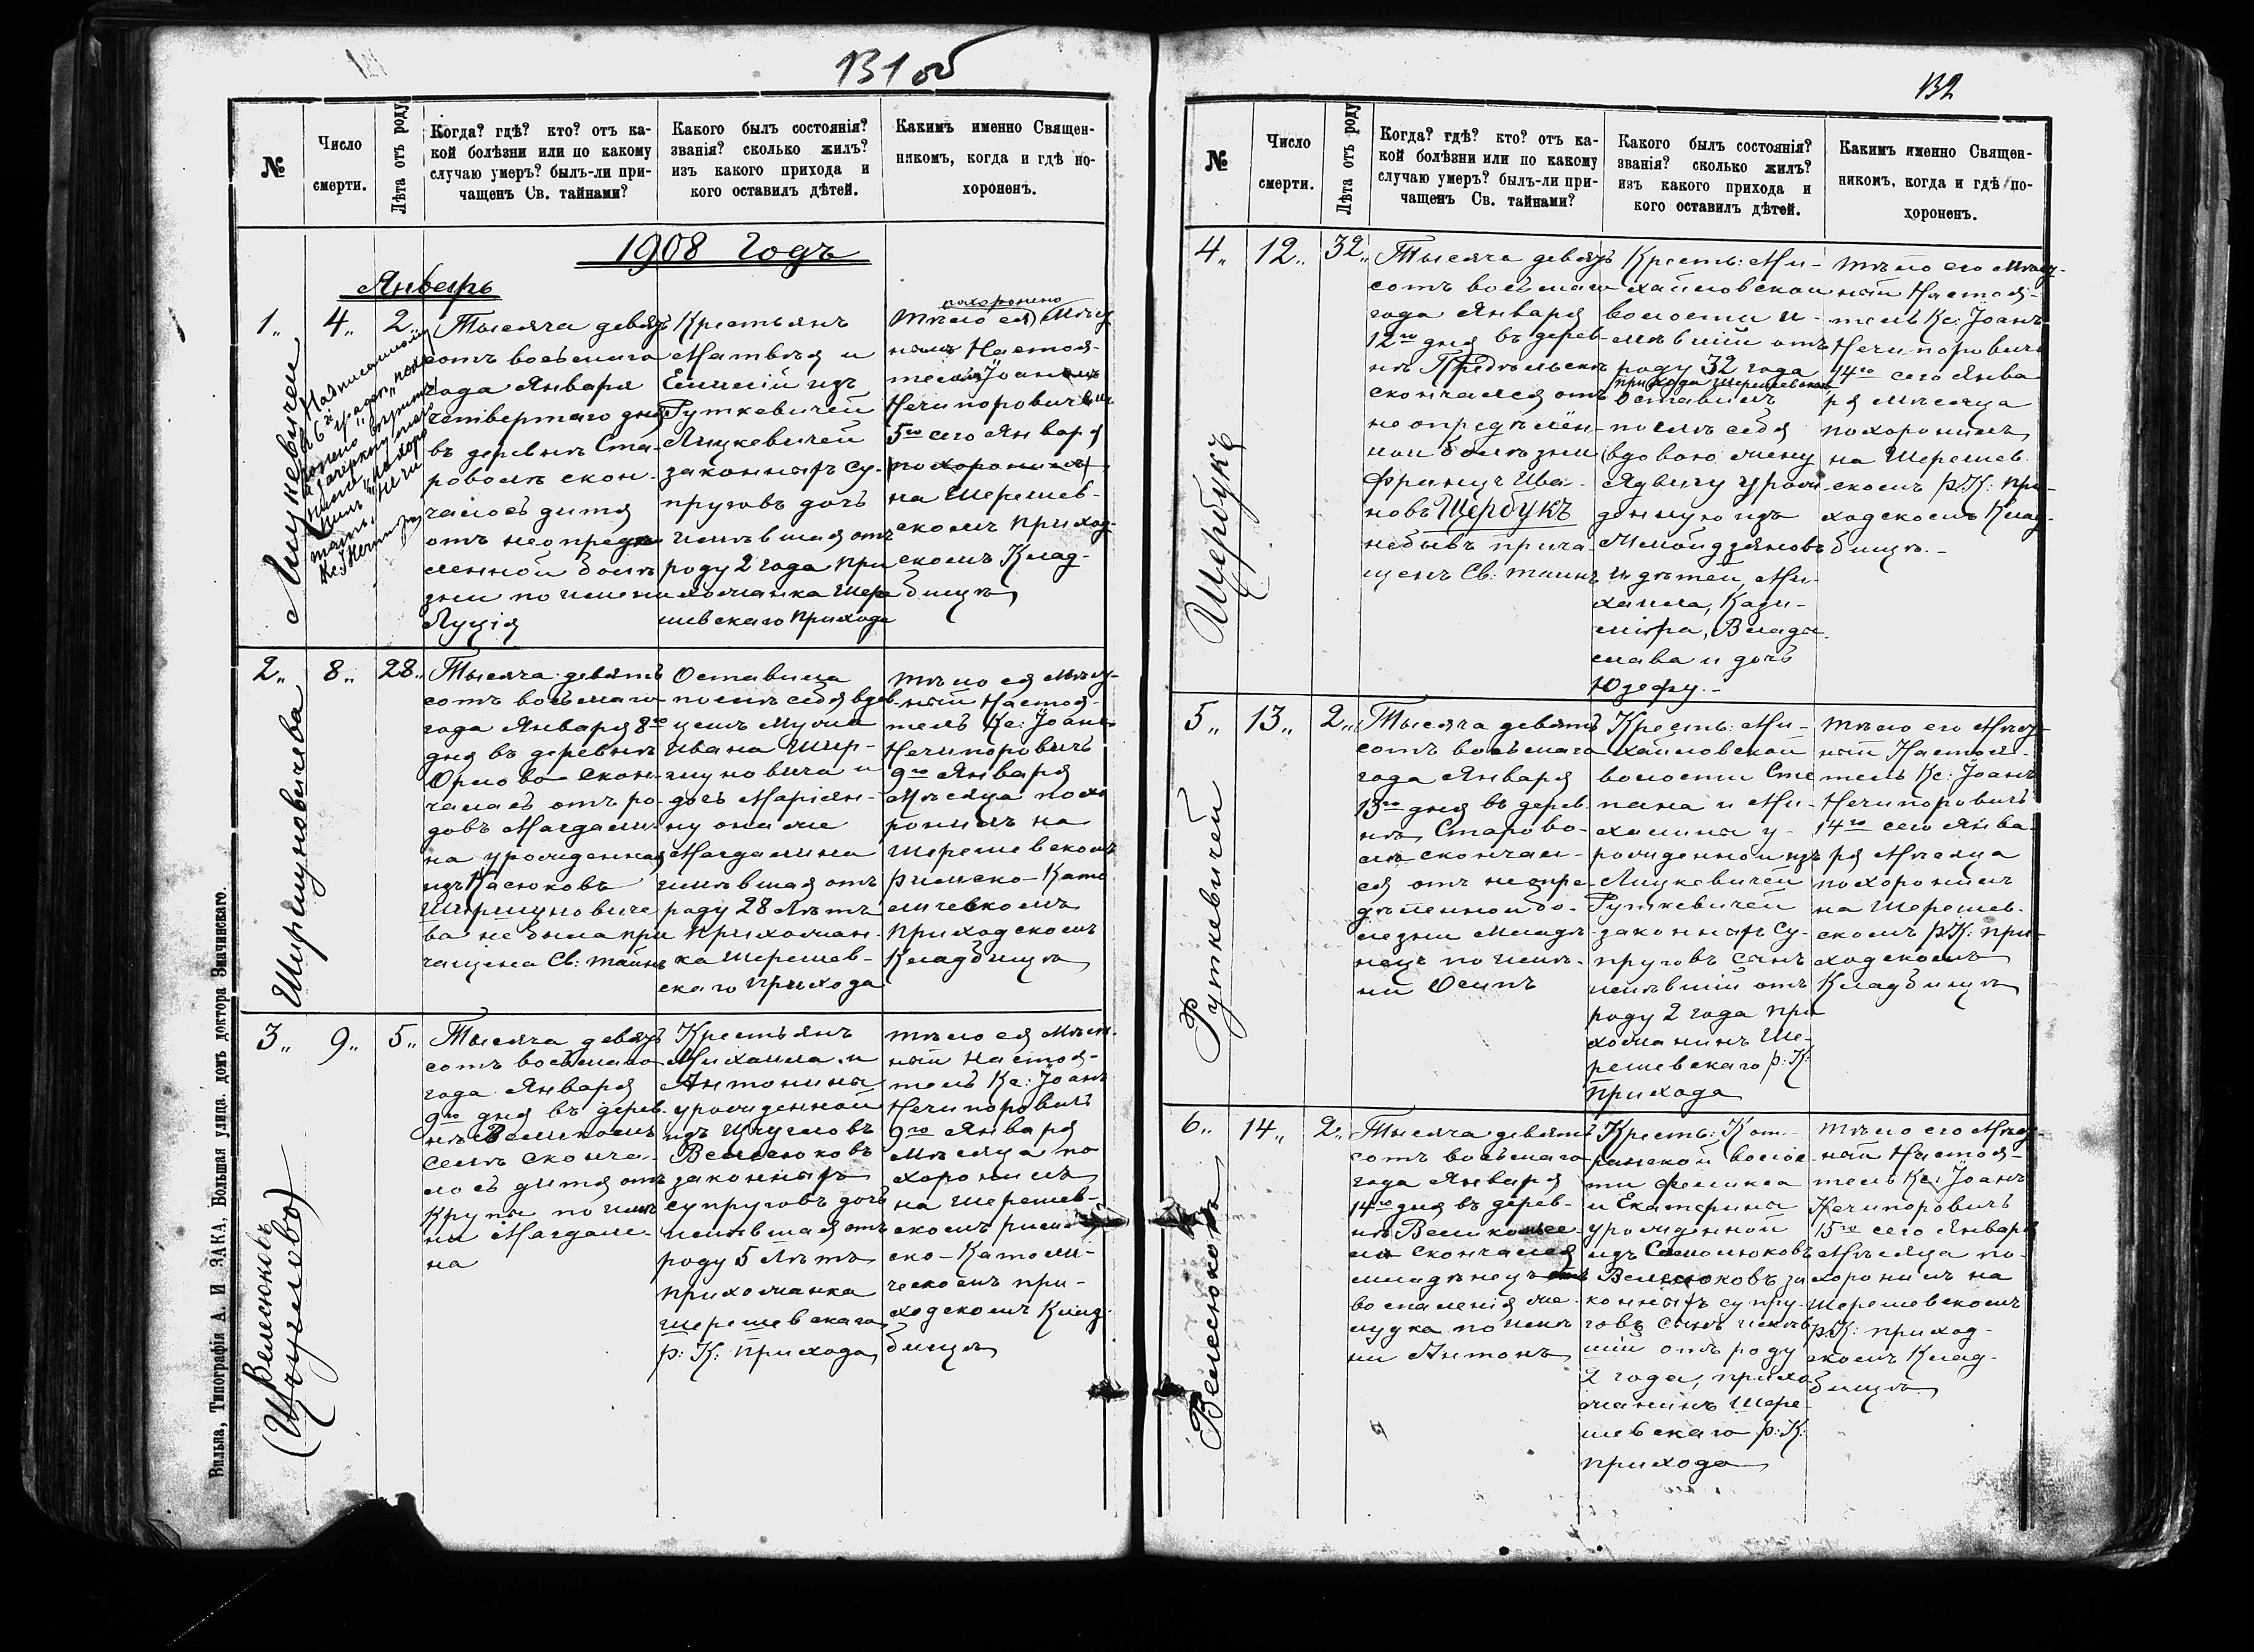 131 об
№
Число
смерти.
Лѣта отъ роду
Когда? гдѣ? кто? отъ ка-
кой болѣзни или по какому
случаю умеръ? былъ-ли при-
чащенъ Св. тайнами?
Какого былъ состоянія?
званія? сколько жилъ?
изъ какого прихода и
кого оставилъ дѣтей.
Какимъ именно Священ-
никомъ, когда и гдѣ по-
хороненъ.
1908 годъ
Январь
1.
4.
2.
Тысяча девять
сотъ восьмаго
года Января
четвертаго дня
въ деревнѣ Ста-
роволѣ скон-
чалось дитя
отъ неопредѣ-
ленной болѣ
зни по имени
Луція
Крестьянъ
Матвѣя и
Емилій изъ
Руткевичей
Лицкевичей
законныхъ су-
пруговъ дочь
имѣвшая отъ
роду 2 года при
хожанка Шере
шевскаго прихода
похоронено
Тѣло ея Мѣст
нымъ Настоя-
телемъ Іоанномъ
Нечипоровичемъ
5го сего Января
похоронилъ
на Шерешев-
скомъ приход-
скомъ Клад-
бищѣ
2.
8.
28.
Ширшуновичева
Тысяча девять
сотъ восьмаго
года Января 8го
дня въ деревнѣ
Орлово скон-
чалась отъ ро-
довъ Магдали-
на урожденная
изъ Касюковъ
Ширшуновиче
ва не была при
чащена Св: тайнъ
Оставила
послѣ себя вдов-
цемъ мужа
Ивана Шир-
шуновича и
дочь Маріян-
ну она же
Магдалина
имѣвшая отъ
роду 28 лѣтъ
прихожан-
ка Шерешев-
скаго прихода
Тѣло ея Мѣст-
ный Настоя-
тель Кс: Іоанъ
Нечипоровичъ
9го Января
Мѣсяца похо
ронилъ на
Шерешевскомъ
Римско-Като
лическомъ
приходскомъ
Кладбищѣ
3.
9.
5.
Велесюковъ
(Щуглово)
Тысяча девять
сотъ восьмаго
года Января
9го дня въ дерев-
нѣ Великомъ
Селѣ сконча-
лось дитя отъ
Крупы по име
ни Магдале-
на
Крестьянъ
Михаила и
Антонины
урожденной
изъ Щугловъ
Велесюковъ
законныхъ
супруговъ дочь
имѣвшая отъ
роду 5 лѣтъ
прихожанка
Шерешевскаго
р: К: прихода
Тѣло ея Мѣст-
ный Настоя-
тель Кс: Іоанъ
Нечипоровичъ
9го Января
Мѣсяца по
хоронилъ
на Шерешев-
скомъ римс
ско-Католи-
ческомъ при-
ходскомъ Клад-
бищѣ
Вильна, Типографія А. И. ЗАКА, Большая улица. домъ доктора Значинскаго.
132
№
Число
смерти.
Лѣта отъ роду
Когда? гдѣ? кто? отъ ка-
кой болѣзни или по какому
случаю умеръ? былъ-ли при-
чащенъ Св. тайнами?
Какого былъ состоянія?
званія? сколько жилъ?
изъ какого прихода и
кого оставилъ дѣтей.
Какимъ именно Священ-
никомъ, когда и гдѣ по-
хороненъ.
4.
12.
32.
Щербукъ
Тысяча девять
сотъ восьмаго
года Января
12го дня въ дерев-
нѣ Предѣльскъ
скончался отъ
неопредѣлён-
ной болѣзни
Францъ Ива-
новъ Щербукъ
небывъ прича-
щенъ Св: таинъ
Кресть: Ми-
хайловской
волости и-
мѣвшій отъ
роду 32 года
прихода Шерешевскаго
оставилъ
послѣ себя
вдовою жену
Ядвигу урож-
денную изъ
и дѣтей, Ми-
хаила, Кази-
міра, Влади-
слава и дочь
Юзефу.-
Тѣло его Мѣст-
ный Настоя-
тель Кс: Іоанъ
Нечипоровичъ
14го сего Янва
ря Мѣсяца
похоронилъ
на Шерешев-
скомъ р.К: при-
ходскомъ Клад-
бищѣ.-
5.
13.
2.
Руткевичей
Тысяча девять
сотъ восьмаго
года Января
13го дня въ дерев-
нѣ Старово-
лѣ скончал-
ся отъ неопре-
дѣленной бо-
лезни младе-
нецъ по име-
ни Осипъ
Кресть: Ми-
хайловской
волости Сте
пана и Ми-
халины у-
рожденной изъ
Лицкевичей
Руткевичей
законныхъ су-
пруговъ сынъ
имѣвшій отъ
роду 2 года при
хожанинъ Ше-
решевскаго р: К:
прихода
Тѣло его Мѣст-
ный Настоя-
тель Кс: Іоанъ
Нечипоровичъ
14го сего Янва-
ря Мѣсяца
похоронилъ
на Шерешев-
скомъ р.К: при-
ходскомъ
Кладбищѣ
6.
14.
2.
Велесюковъ
Тысяча девять
сотъ восьмаго
года Января
14го дня въ дерев-
нѣ Великомсе
лѣ скончался
младѣнецъ отъ
воспаленія же-
лудка по име
ни Антонъ
Кресть: Кот-
ранской волос
ти Феликса
и Екатерины
урожденной
изъ Самолюковъ
Велесюковъ за
конныхъ супру-
говъ сынъ имѣв
шій отъ роду
2 года, прихо
жанинъ Шере-
шевскаго р: К:
прихода
Тѣло его Мѣст-
ный Настоя-
тель Кс: Іоанъ
Нечипоровичъ
15го сего Января
Мѣсяца по-
хоронилъ на
Шерешовскомъ
р.К: приход-
скомъ Клад-
бищѣ